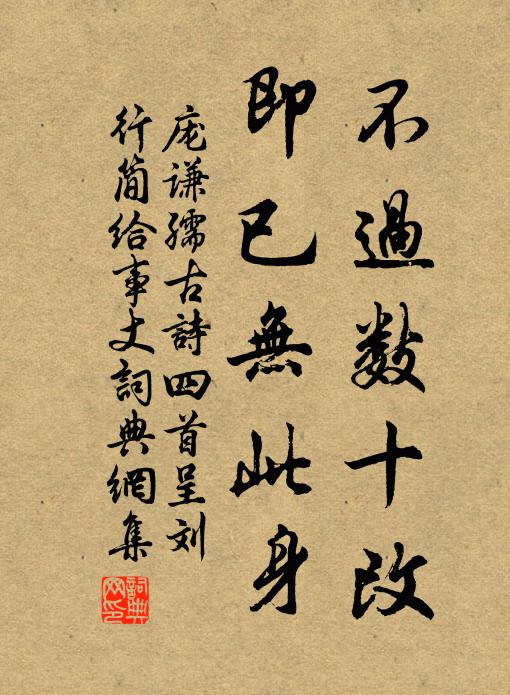 不過数十改
即已無此身
庞谦孺古詩四首呈刘
行简给事丈詞典網集
詞典网印